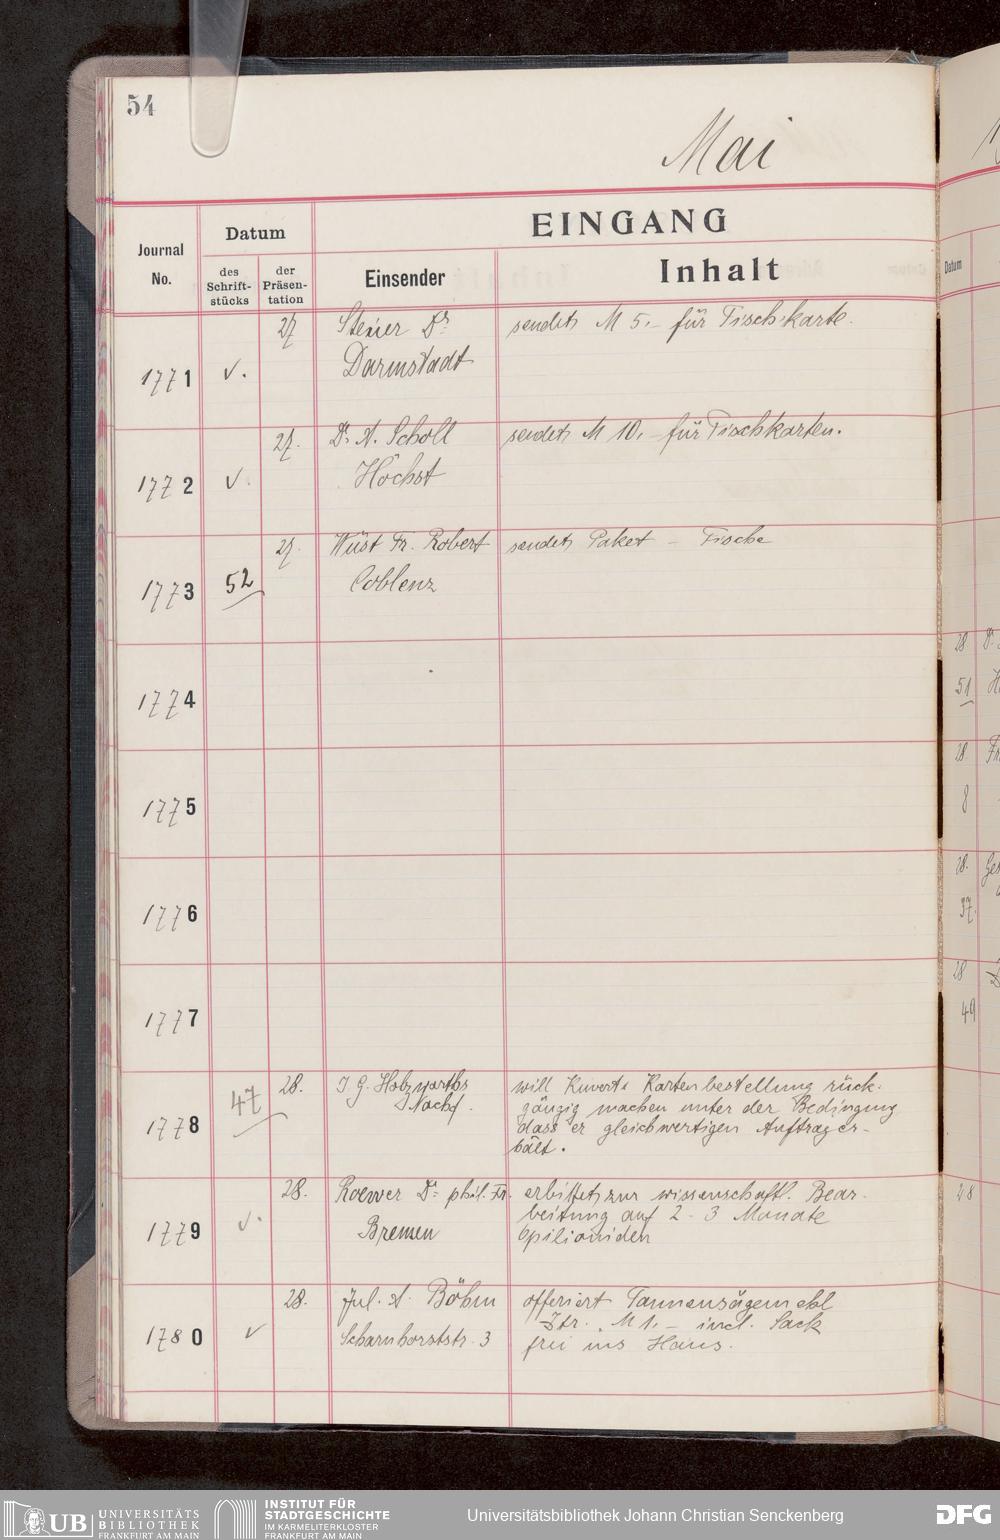 54
Mai
EINGANG
Journal No.
Datum
des Schrift-stücks
der Präsen-tation
Einsender
Inhalt
27 Steuer Dr. sendet M 5.- für Tischkarte.
1771 v. Darmstadt
27. Dr. A. Scholl sendet M 10.- für Tischkarten.
1772 v. Höchst
27. Wüst Fr. Robert sendet Paket - Fische
1773 52 Coblenz
1774
1775
1776
1777
28. J. G. Holzwarths will Kuverts Kartenbestellung rück-
47 Nachf. gängig machen unter der Bedingung
1778 dass er gleichwertigen Auftrag er-
hält.
28. Roewer Dr. phil. Fr. erbittet zur wissenschaftl. Bear-
v. Bremen beitung auf 2-3 Monate
1779 Opilioniden
28. Jul. A. Böhm offeriert Tannensägemehl
1780 v Scharnhorststr. 3 Ztr. M 1.- incl. Sack
frei ins Haus.
Datum
28
51
28.
8
28.
37.
28
49
28
UB UNIVERSITÄTS BIBLIOTHEK FRANKFURT AM MAIN
INSTITUT FÜR STADTGESCHICHTE IM KARMELITERKLOSTER FRANKFURT AM MAIN
Universitätsbibliothek Johann Christian Senckenberg
DFG